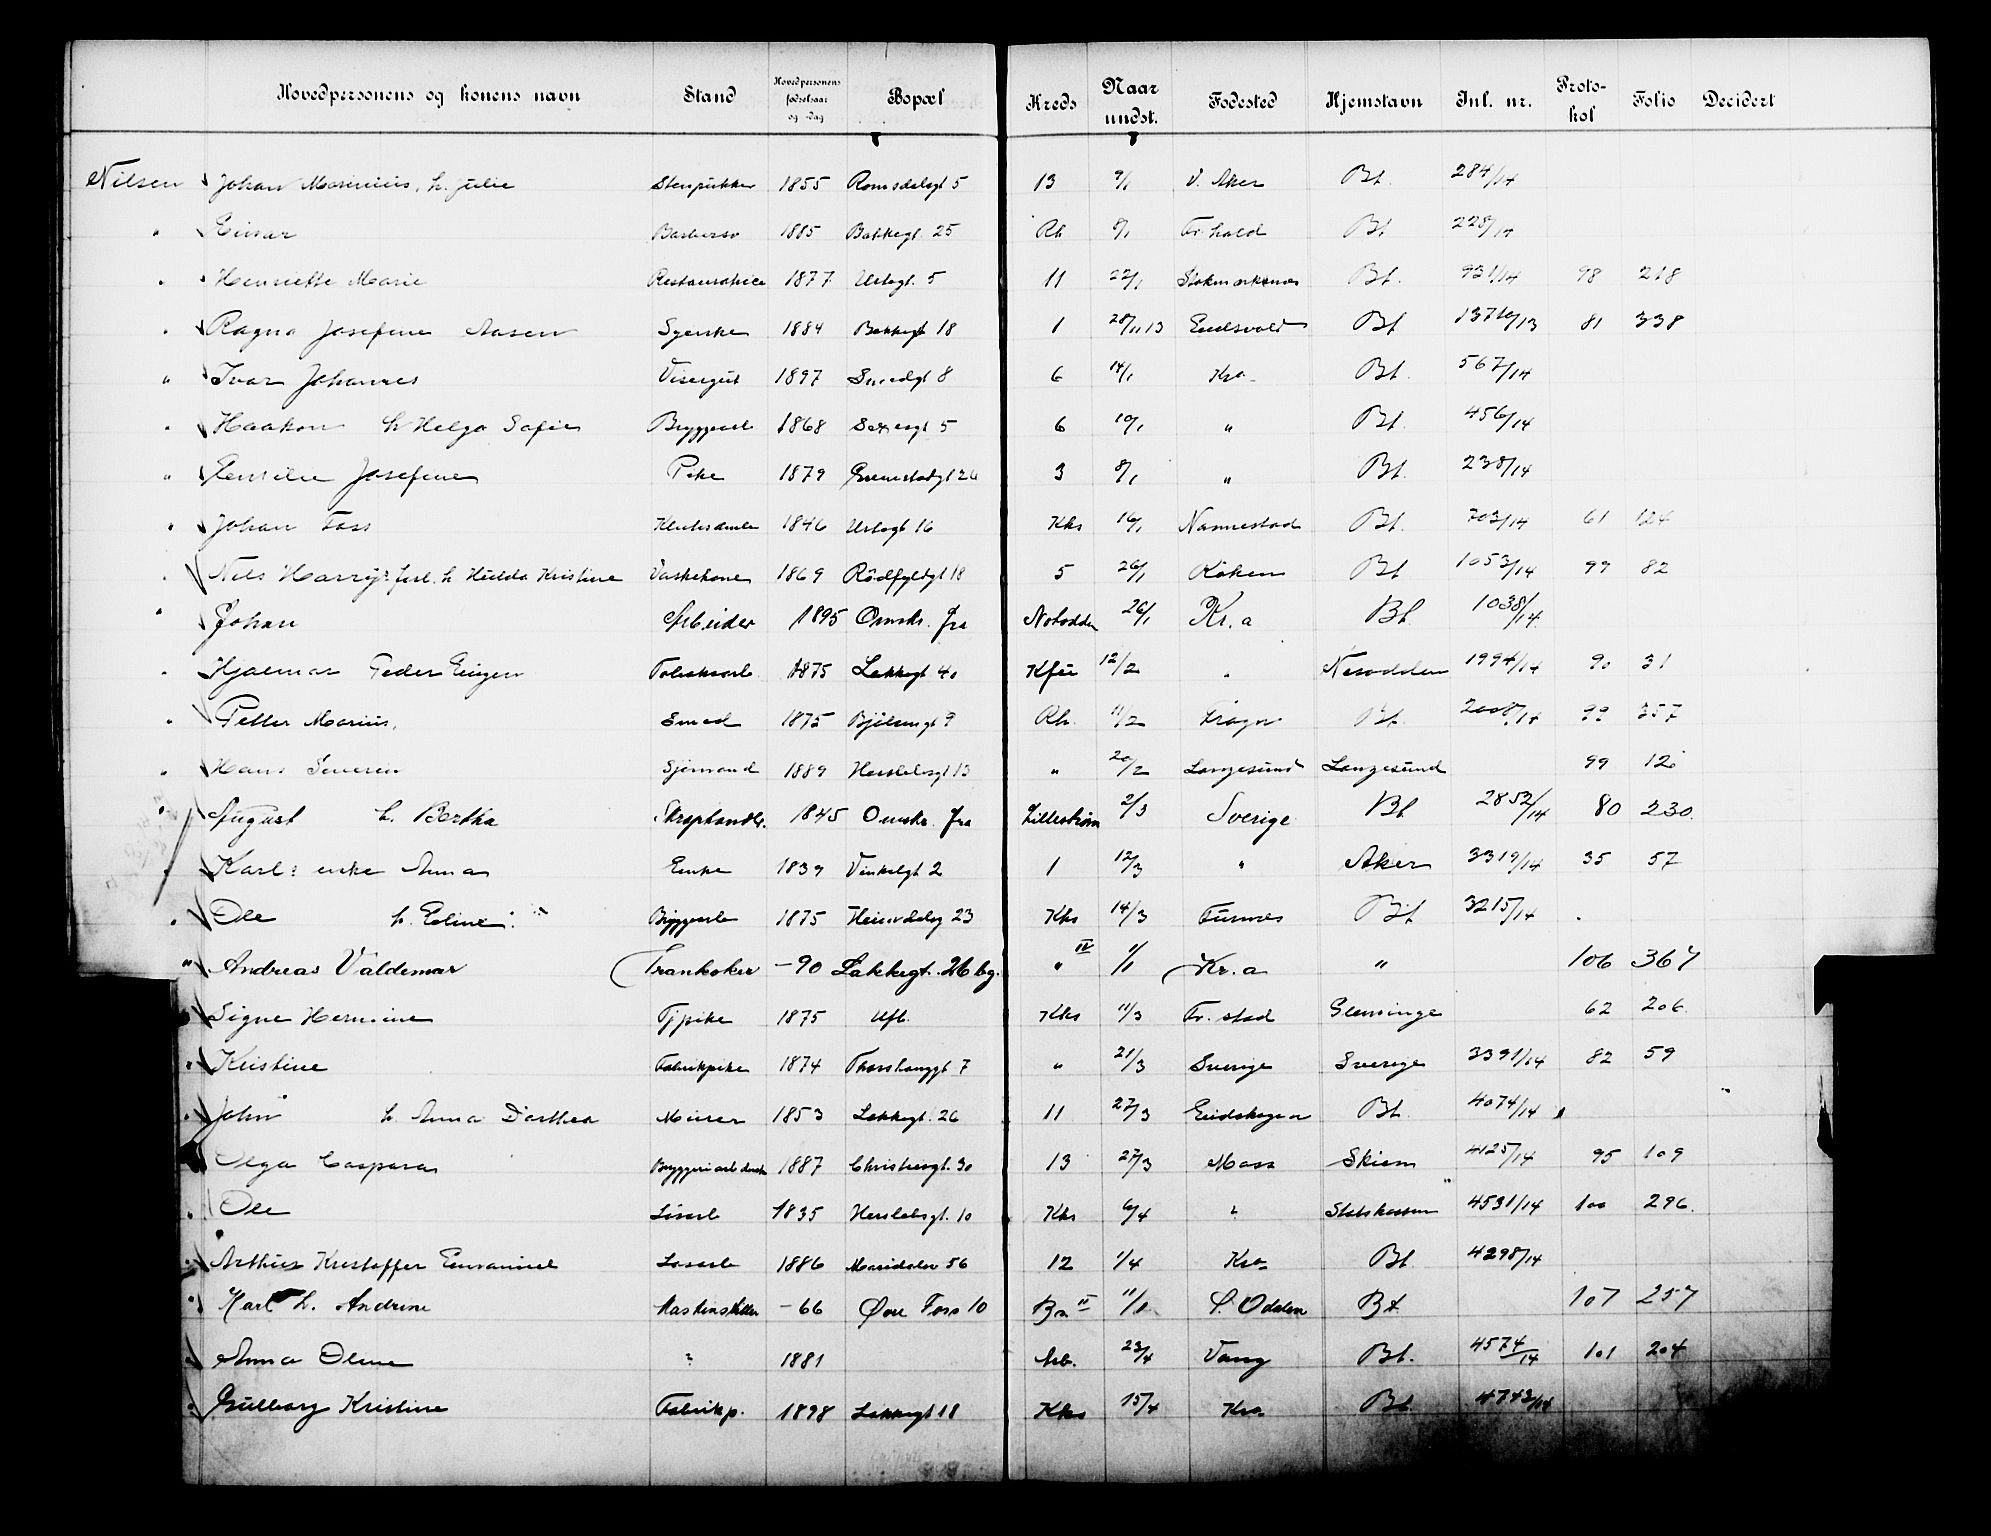 Hovedpersonens og konens navn Stand Hovedpersonens fødselsaar og -dag Bopæl Kreds Naar undst. Fødested Hjemstavn Inl. nr. Protokol Folio Decidert
Nilsen Johan Marinius, h. Julie Stenpukker 1855 Romsdalsgt 5 13 9/1 V. Aker Bt. 284/14
" Einar Barbersv 1885 Bakkegt. 25 Rh 8/1 Fr.hald Bt 228/14
" Henriette Marie Restauratrice 1877 Urtegt. 5 11 22/1 Stokmarknes Bt. 931/14 98 218
" Ragna Josefine Aasen Syerske 1884 Bakkegt 18 1 28/11 13 Eidsvold Bt 13716/13 81 338
" Ivar Johannes Visergut 1897 Smedgt 8 6 14/1 Kra Bt. 567/14
" Haakon h Helga Sofie Bryggearb 1868 6 10/1 " Bt. 456/14
" Emilie Josefine Pike 1879 Grimstadgt 26 3 8/1 " Bt. 238/14
" Johan Foss Klutesamler 1846 Urtegt 16 Kks 16/1 Nannestad Bt. 703/14 61 124
" Nils Harry: h Hulda Kristine Vaskekone 1869 Rödfyldgt 18 5 26/1 Röken Bt 1053/14 99 82
" Johan Arbeider 1895 Omskr. fra Notodden 26/1 Kr.a Bt. 1038/14
" Hjalmar Peder Eugen Fabrikarb. 1875 Lakkegt 40 Kfu 12/2 " Nesodden 1994/14 90 31
" Petter Marius, Smed 1875 Bjölsengt 9 Rh. 11/2 Bt. 2008/14 99 357
" Hans Severin Sjömand 1889 Herslebsgt 13 " 20/2 Langesund Langesund 99 12
" August h. Bertha Skraphandlr. 1845 Omskr. fra Lilleström 2/3 Sverige Bt 2852/14 80 230.
" Karl: enke Anna Enke 1839 Vinkelgt 2 1 12/3 " Aker 3319/14 35 57
" Ole h. Eline: Bryggearb 1875 Heimdalsg 23 Kks 14/3 Furnes Bt 3215/14
" Andreas Valdemar Trankoker -90 Lakkegt. 26 bg. " IV 1/1 Kr.a " 106 367
" Signe Hermine Tjpike 1875 Ufl. Kks 11/3 Fr.stad Glemminge 62 206.
" Kristine Fabrikpike 1874 Thorshauggt 7 " 21/3 Sverige Sverige 3391/14 82 59
" John h. Anna Dorthea Murer 1853 Lakkegt. 26 11 27/3 Eidskogen Bt. 4074/14
" Olga Caspara 1887 Christiesgt. 30 13 27/3 Moss Skien 4125/14 95 109
" Ole Lösarb 1835 Herslebsgt. 10 Kks 6/4 ? Statskassen 4531/14 100 296.
" Arthur Kristoffer Emanuel Lösarb 1886 Maridalsv 56 12 1/4 Kra Bt. 4298/14
" Karl h. Andrine Maskinstiller -66 Øvre Foss 10 Bra II 11/1 S. Odalen Bt. 107 257
" Anna Oline ? 1881 Arb. 23/4 Vang Bt. 4574/14 101 204
" Gulborg Kristine Fabrikp. 1898 Lakkegt 18 Kks 15/4 Kra Bt 4743/14